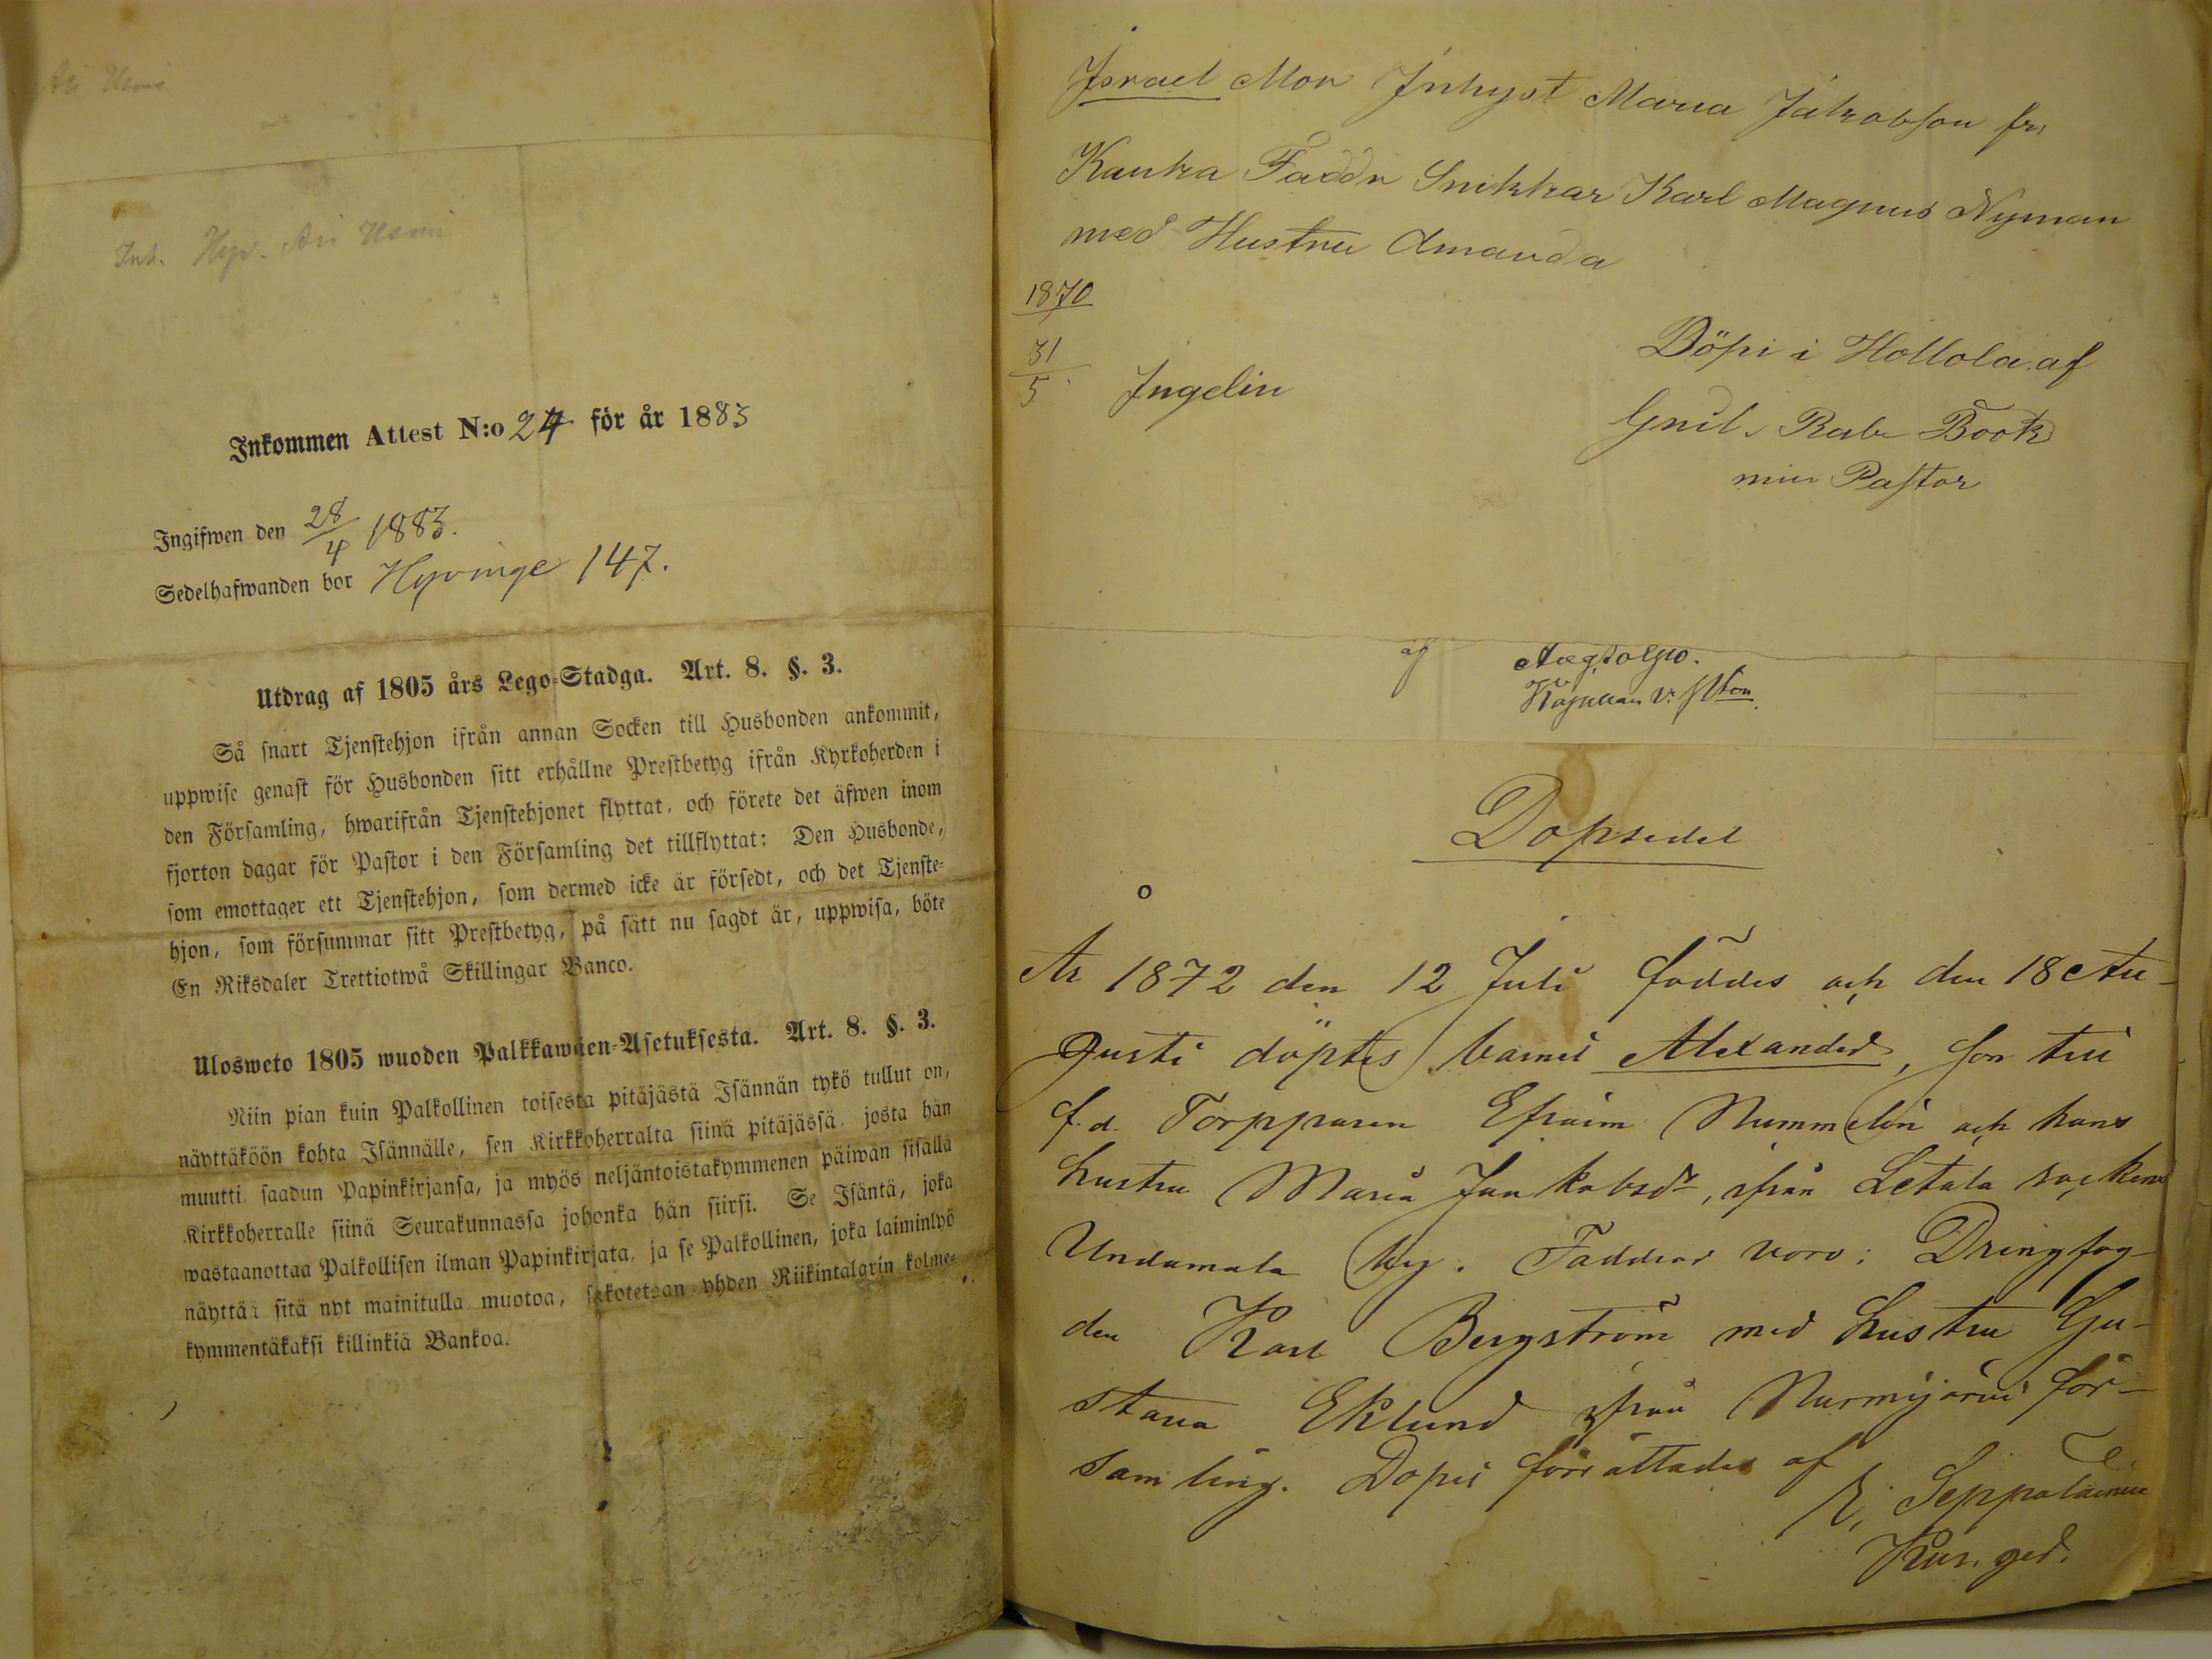 Inh. Hyv.
Inkommen Attest N:o 24 för år 1883
Ingifwen den 28/4 1883.
Sedelhafwanden bor Hyvinge 147.
Utdrag af 1805 års Lego-Stadga. Art. 8. §. 3.
Så snart Tjenstehjon ifrån annan Socken till Husbonden ankommit,
uppwise genast för Husbonden sitt erhållne Prestbetyg ifrån Kyrkoherden i
den Församling, hwarifrån Tjenstehjonet flyttat, och förete det äfwen inom
fjorton dagar för Pastor i den Församling det tillflyttat: Den Husbonde,
som emottager ett Tjenstehjon, som dermed icke är försedt, och det Tjenste-
hjon, som försummar sitt Prestbetyg, på sätt nu sagdt är, uppwisa, böte
En Riksdaler Trettiotwå Skillingar Banco.
Ulosweto 1805 wuoden Palkkawäen-Asetuksesta. Art. 8. §. 3.
Niin pian kuin Palkollinen toisesta pitäjästä Isännän tykö tullut on,
näyttäköön kohta Isännälle, sen Kirkkoherralta siinä pitäjässä, josta hän
muutti, saadun Papinkirjansa, ja myös neljäntoistakymmenen päiwän sisällä
Kirkkoherralle siinä Seurakunnassa johonka hän siirsi. Se Isäntä, joka
wastaanottaa Palkollisen ilman Papinkirjata, ja se Palkollinen, joka laiminlyö
näyttää sitä nyt mainitulla muotoa, sakotetaan yhden Riikintalarin kolme-
kymmentäkaksi killinkiä Bankoa.
Israel Mor Inhyst Maria Jakobson fr.
Kauka Faddr Snikkar Karl Magnus Nyman
med Hustru Amanda
1870
31/5 Ingelin
Döpt i Hollola af
Gust. Book
min Pastor
af
Dopsedel
År 1872 den 12 Juli föddes och den 18 Au-
gusti döptes barnet Alexander, son till
f.d. Torpparen Efraim Nummelin och hans
hustru Maria Jaakobsdr, ifrån Letala socken
Undamala by. Faddrar voro: Drengfog-
den Karl Bergström med hustru Gu-
stava Eklund ifrån Nurmijärvi för-
samling. Dopet förrättades af
E. Seppäläinen